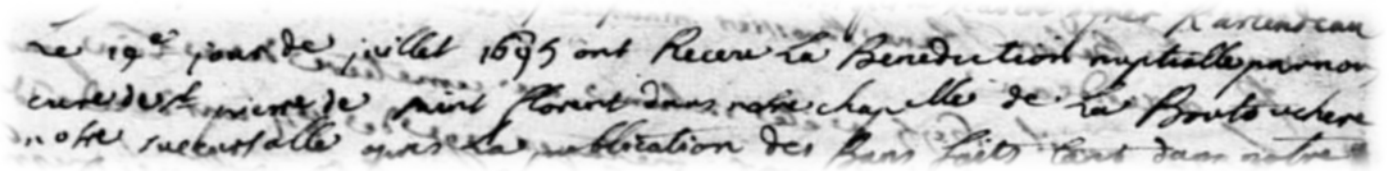 Le 19e jour de juillet 1695 ont Receu La Benediction nuptialle par nou
cure de st pierre de saint florent dans notre chapelle de La Boutouchere
notre succursalle apres La publication des Bans faits tant dans notre